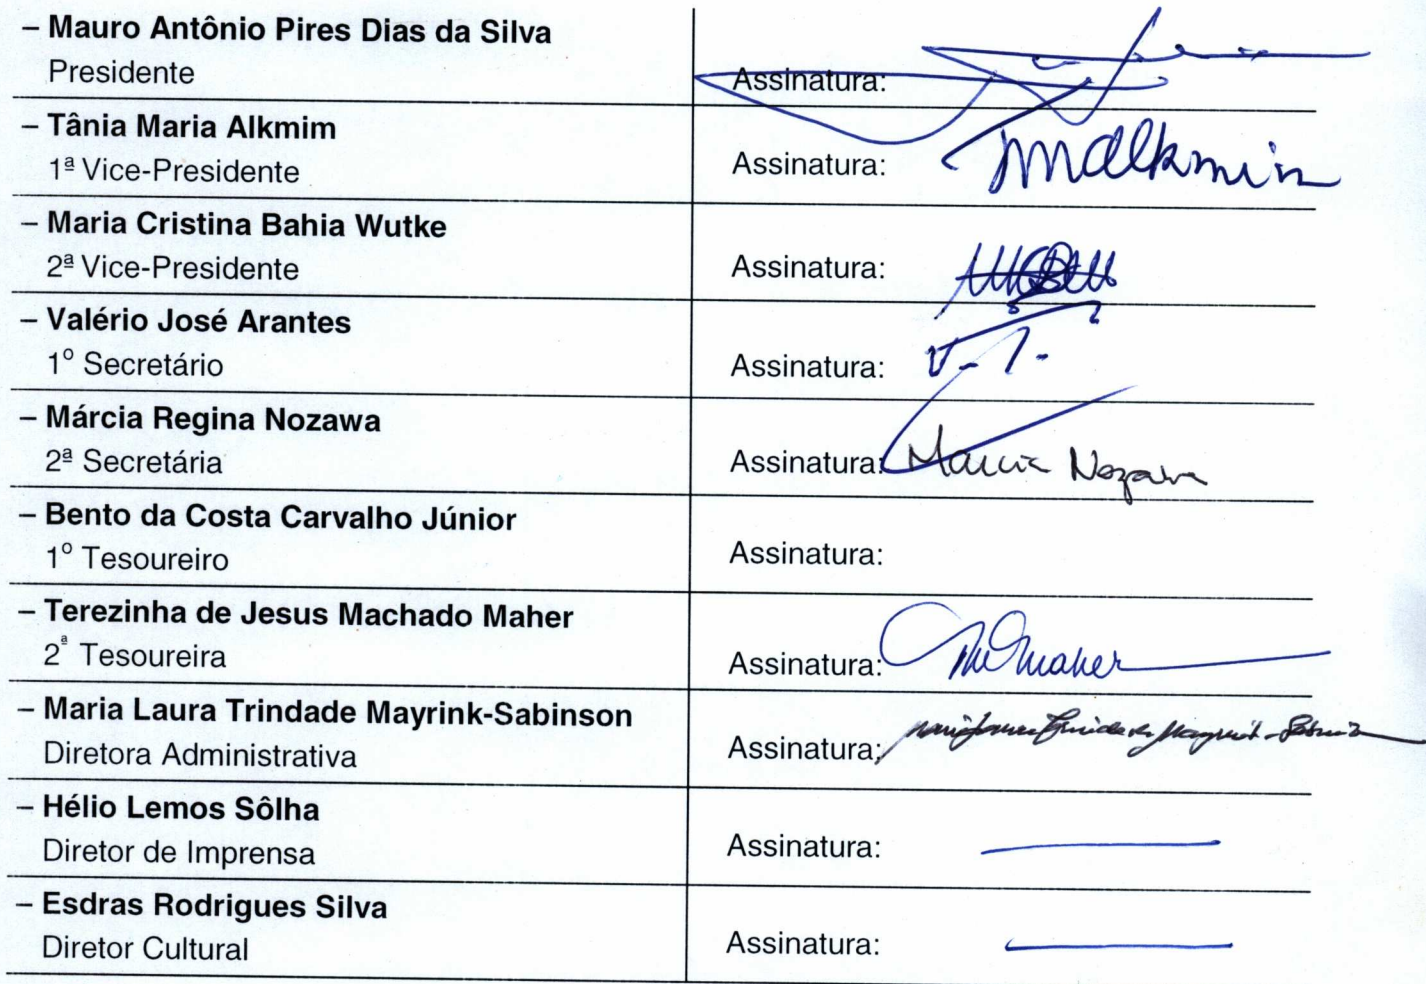 – Mauro Antônio Pires Dias da Silva
Presidente
Assinatura:
– Tânia Maria Alkmim
1ª Vice-Presidente
Assinatura: TMAlkmim
– Maria Cristina Bahia Wutke
2ª Vice-Presidente
Assinatura:
– Valério José Arantes
1º Secretário
Assinatura:
– Márcia Regina Nozawa
2ª Secretária
Assinatura: Marcia Nozawa
– Bento da Costa Carvalho Júnior
1º Tesoureiro
Assinatura:
– Terezinha de Jesus Machado Maher
2ª Tesoureira
Assinatura: Maher
– Maria Laura Trindade Mayrink-Sabinson
Diretora Administrativa
Assinatura: Maria Laura Trindade Mayrink-Sabinson
– Hélio Lemos Sôlha
Diretor de Imprensa
Assinatura:
– Esdras Rodrigues Silva
Diretor Cultural
Assinatura: